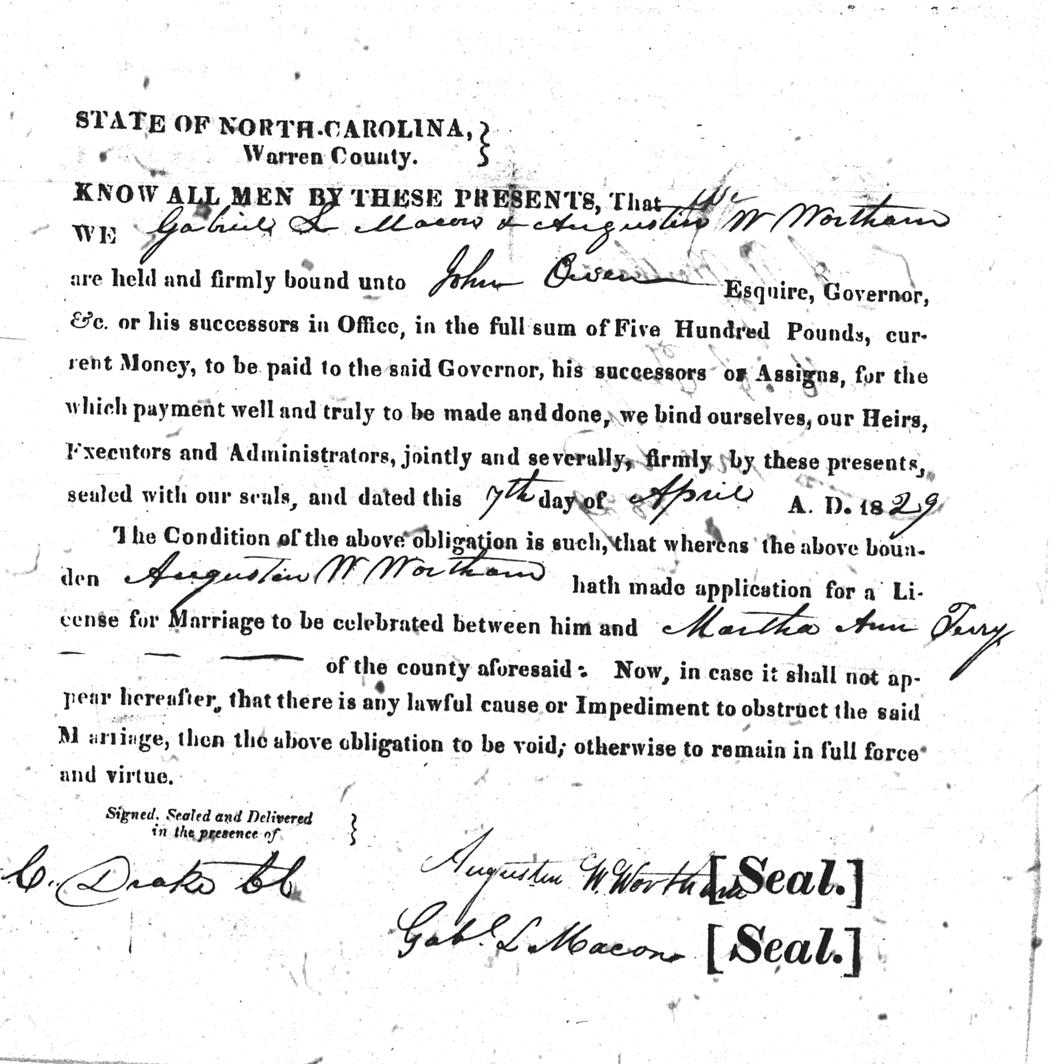 STATE OF NORTH-CAROLINA,
Warren County.
KNOW ALL MEN BY THESE PRESENTS, That We
WE Gabriel L Macon & Augustin W Wortham
are held and firmly bound unto John Owen Esquire, Governor,
&c. or his successors in Office, in the full sum of Five Hundred Pounds, cur-
rent Money, to be paid to the said Governor, his successors or Assigns, for the
which payment well and truly to be made and done, we bind ourselves, our Heirs,
Executors and Administrators, jointly and severally, firmly by these presents,
sealed with our seals, and dated this 7th day of April A. D. 1829
The Condition of the above obligation is such, that whereas the above boun-
den Augustin W Wortham hath made application for a Li-
cense for Marriage to be celebrated between him and Martha Ann Terry
of the county aforesaid: Now, in case it shall not ap-
pear hereafter, that there is any lawful cause or Impediment to obstruct the said
Marriage, then the above obligation to be void; otherwise to remain in full force
and virtue.
Signed, Sealed and Delivered
in the presence of
C. Drake Cl
Augustin W. Wortham [Seal.]
Gabl. L Macon [Seal.]